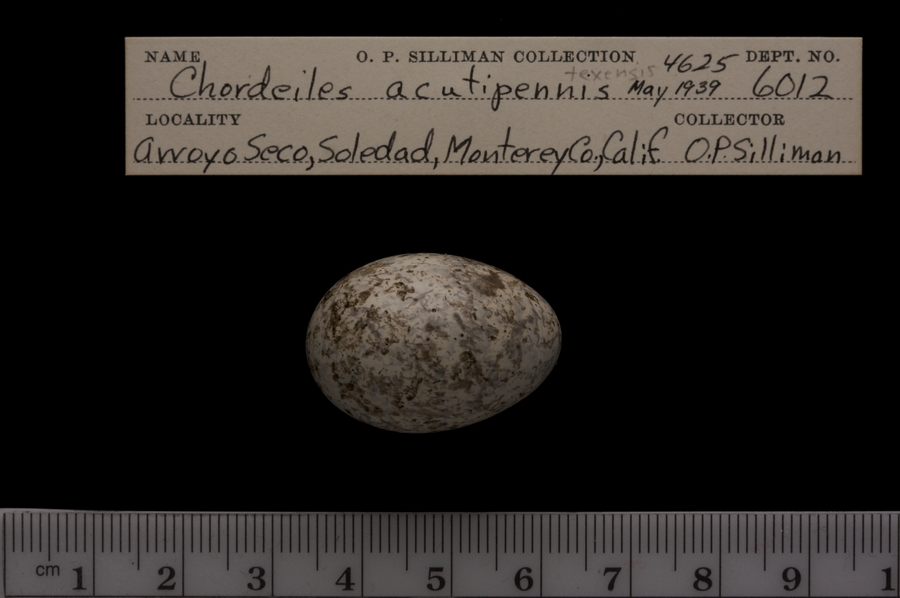 NAME O. P. SILLIMAN COLLECTION 4625 DEPT. NO.
texensis
Chordeiles acutipennis May 1939 6012
LOCALITY COLLECTOR
Arroyo Seco, Soledad, Monterey Co., Calif. O.P. Silliman
cm 1 2 3 4 5 6 7 8 9 1